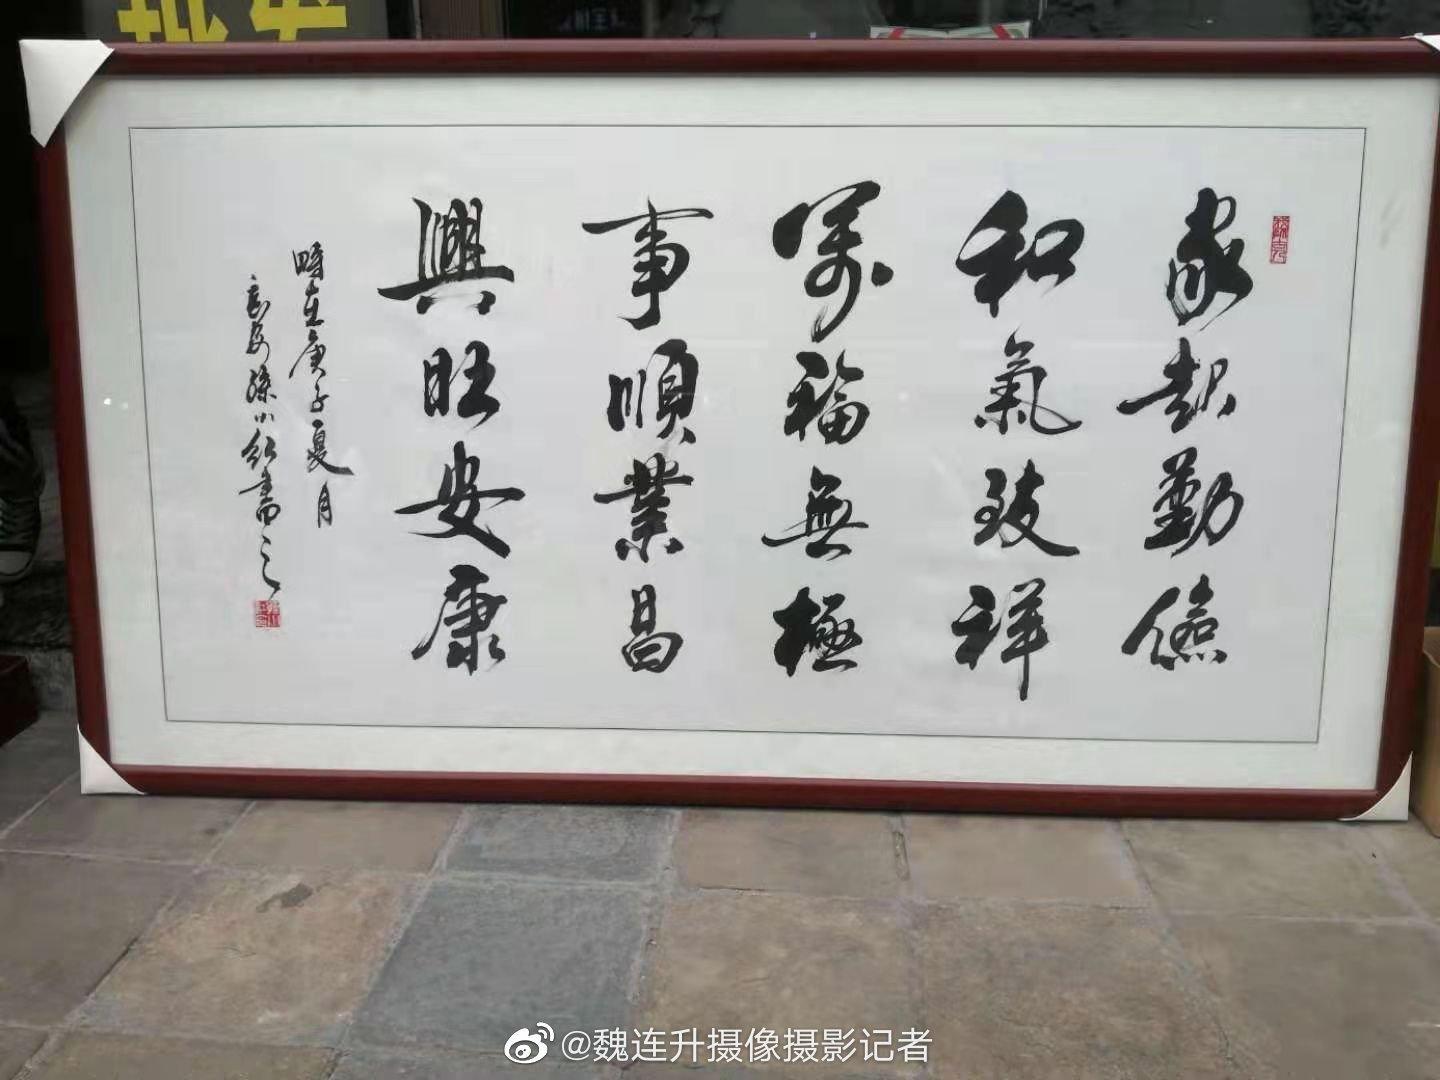 家起勤儉
和氣致祥
萬福無極
事順業昌
興旺安康
時在庚子夏月
長安孫小紅書之
@魏连升摄像摄影记者